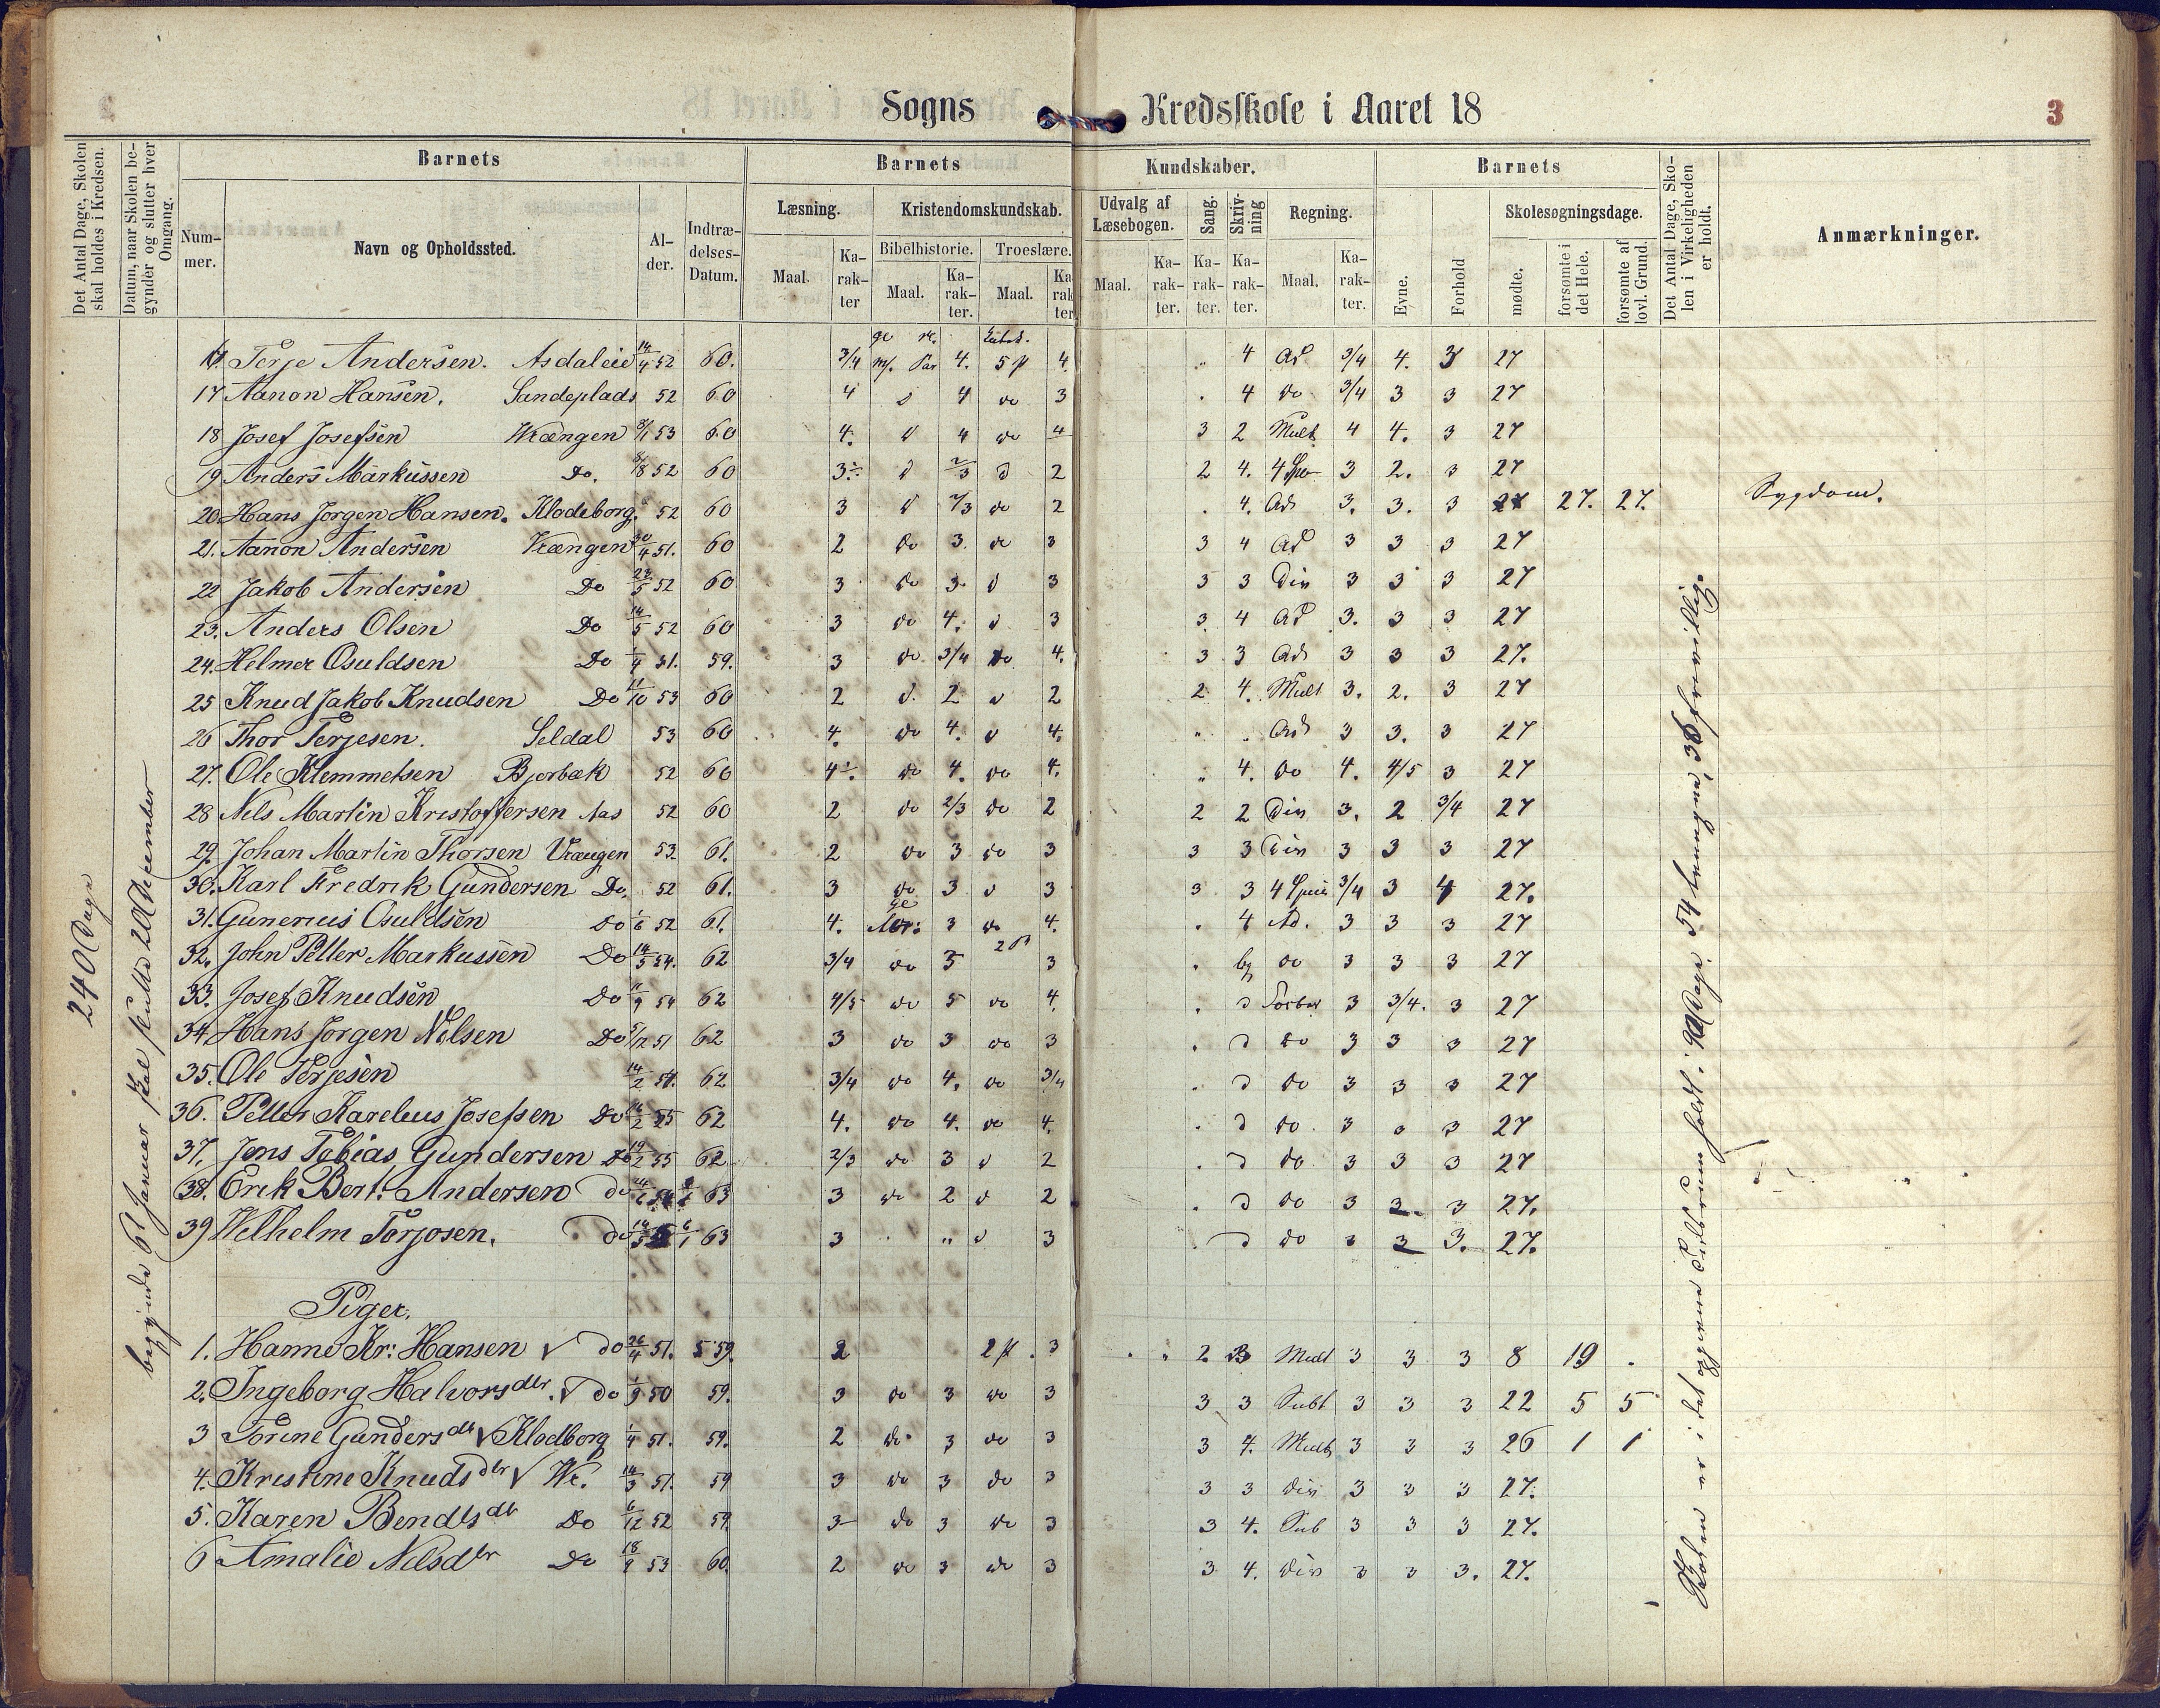 Sogns Kredsskole i Aaret 18 3
Det Antal Dage, Skolen skal holdes i Kredsen.
Datum, naar Skolen begynder og slutter hver Omgang.
Barnets Barnets Kundskaber. Barnets
Det Antal Dage, Skolen i Virkeligheden er holdt.
Anmærkninger.
Nummer. Navn og Opholdssted. Alder. Indtrædelses-Datum.
Læsning. Kristendomskundskab. Udvalg af Læsebogen. Sang. Skrivning Regning. Evne. Forhold Skolesøgningsdage.
Maal. Karakter Bibelhistorie. Troeslære.
Maal. Karakter. Maal. Karakter
Maal. Karakter. Karakter. Karakter. Maal. Karakter. mødte. forsømte i det Hele. forsømte af lovl. Grund.
240 Dage
Terje Andersen. Asdaleie 14/4 52 60. 3/4 4. 5 4. 4 Ad 3/4 4. 3 27
17 Aanon Hansen. Sandeplads 52 60 4 4 do 3 4 do 3/4 3 3 27
18 Josef Josefsen Vrængen 53 60 4. 4 do 4 3 2 Mult 4 4. 3 27
19 Anders Markussen Do. 52 60 3 2/3 2 2 4. 4 3 2. 3 27
20 Hans Jørgen Hansen. Klodeborg. 52 60 3 2/3 do 2 4. Ad 3. 3. 3 27. 27. Sygdom.
21. Aanon Andersen Vrængen 30/4 51. 60 2 do 3. do 3 3 4 Ad 3 3 3 27
22 Jakob Andersen Do 23/5 52 60 3 do 3. 3 3 3 Div 3 3 3 27
23. Anders Olsen Do 14/5 52 60 3 do 4. 3 3 4 Ad 3. 3 3 27
24. Helmer Osuldsen Do 51. 59. 3 do 3/4 do 4. 3 3 Ad 3 3 3 27.
25 Knud Jakob Knudsen Do 11/10 53 60 2 2 2 2 4. Mult 3. 2. 3 27
26 Thor Terjesen. Seldal 53 60 4. do 4. 4. Ad 3 3. 3 27
27. Ole Klemmetsen Bjorbæk 52 60 4 do 4. do 4. 4. do 4. 4/5 3 27
28 Nils Martin Kristoffersen Aas 52 60 2 do 2/3 do 2 2 2 Div 3. 2 3/4 27
29 Johan Martin Thorsen Vrængen 53 61. 2 do 3 do 3 3 3 Div 3 3 3 27
30. Karl Fredrik Gundersen Do. 52 61. 3 do 3 3 3 3 4 3/4 3 4 27.
31. Gunerius Osuldsen Do 52 61. 4. 3 do 4. 4 Ad. 3 3 3 27
32. John Petter Markussen Do 14/5 54. 62 3/4 do 3 3 do 3 3 3 27
33. Josef Knudsen Do 54 62 4/5 do 5 do 4. 3 3/4. 3 27
34. Hans Jorgen Nilsen Do 51 62 3 do 3 do 3 do 3 3 3 27
35. Ole Terjesen 14/2 54. 62 3/4 do 4. do 3/4 do 3 3 3 27
36. Petter Karelius Josefsen Do 55 62 4. do 4. do 4. do 3 3 3 27
37. Jens Tobias Gundersen Do 19/2 55 62 2/3 do 3 2 do 3 3 3 27
38. Erik Bert. Andersen do 54 63 3 do 2 2 do 3 3. 3 27.
39 Wilhelm Torjosen. do 63 3 " 3 do 3 3 3. 27.
Piger.
1. Hanne Kr: Hansen do 26/4 51. 59. 2 2 3 2. 3 Mult 3 3 3 8 19
2. Ingeborg Halvorsdtr. do 50 59. 3 do 3 do 3 3 3 Subt 3 3 3 22 5 5
3 Torine Gundersdtr Klodborg 51. 59. 2 do 3 do 3 3 4. Mult 3 3 3 26 1 1
4. Kristine Knudsdtr 14/3 51. 59 3 do 3 do 3 3 3 div 3 3 3 27.
5. Karen Bendtsdtr Do 6/12 52 59. 3 do 3 do 3 3 4. Sub 3 3 3 27.
6 Amalie Nilsdtr Do 18/9 53 60. 2 do 3 do 3 3 4. div 3 3 3. 27.